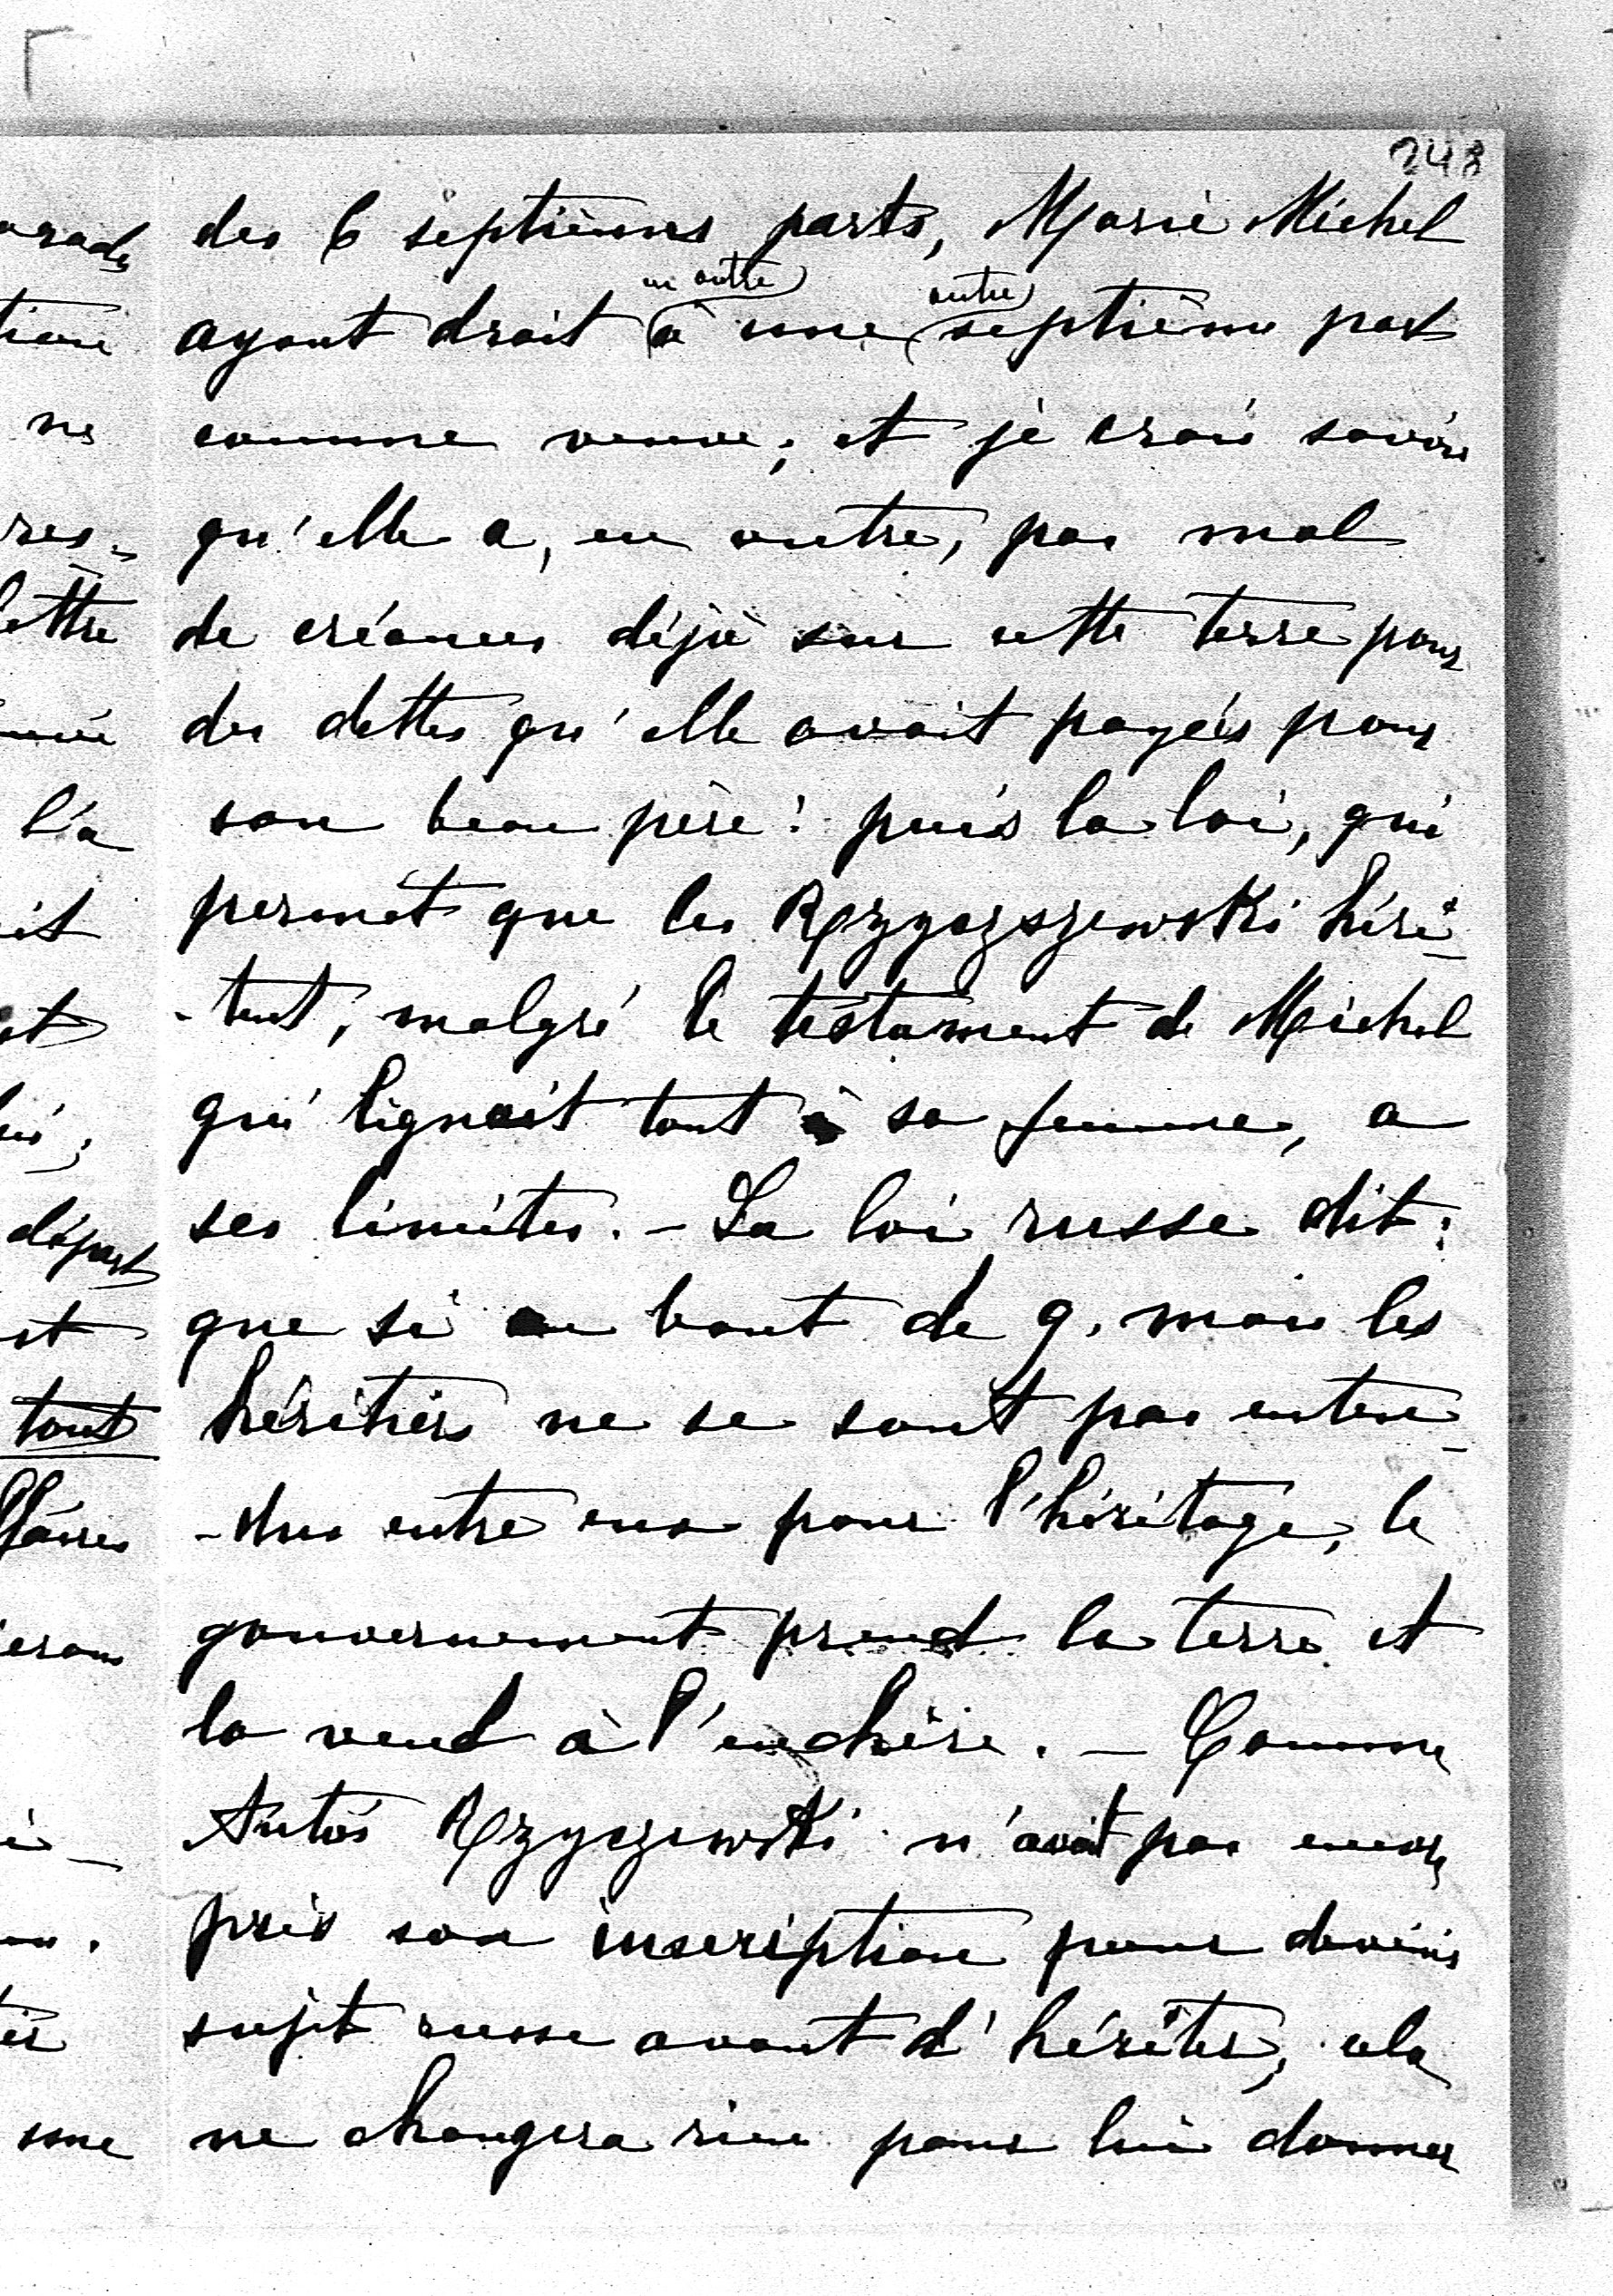 248
des 6 septièmes parts, Marie Michel
en outre autre
ayant droit à une septième part
comme veuve; et je crois savoir
qu'elle a, en outre, pas mal
de créances déjà sur cette terre pour
des dettes qu'elle avait payées pour
son beau père: puis la loi, qui
permet que les Rzyszczewski héri-
-tent, malgré le testament de Michel
qui lignait tout à sa femme, a
ses limites. - La loi russe dit:
que si au bout de 9. mois les
héritiers ne se sont pas enten-
-dus entre eux pour l'héritage, le
gouvernement prend la terre et
la vend à l'enchère. - Comme
Antoś Rzyczewski n'avait pas encore
pris son inscription pour devenir
sujet russe avant d'hériter, cela
ne changera rien pour lui donner
ne
lettre
l'a
départ
tout